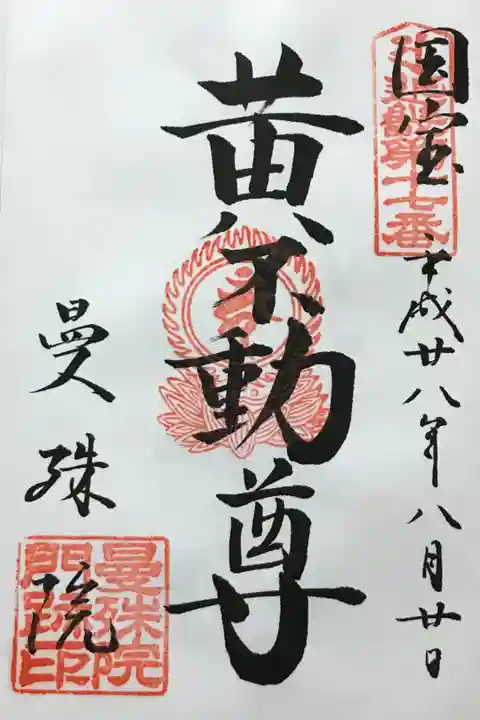 国宝
近畿第十七番
平成廿八年八月廿日
黄不動尊
曼殊院
曼殊院門跡印